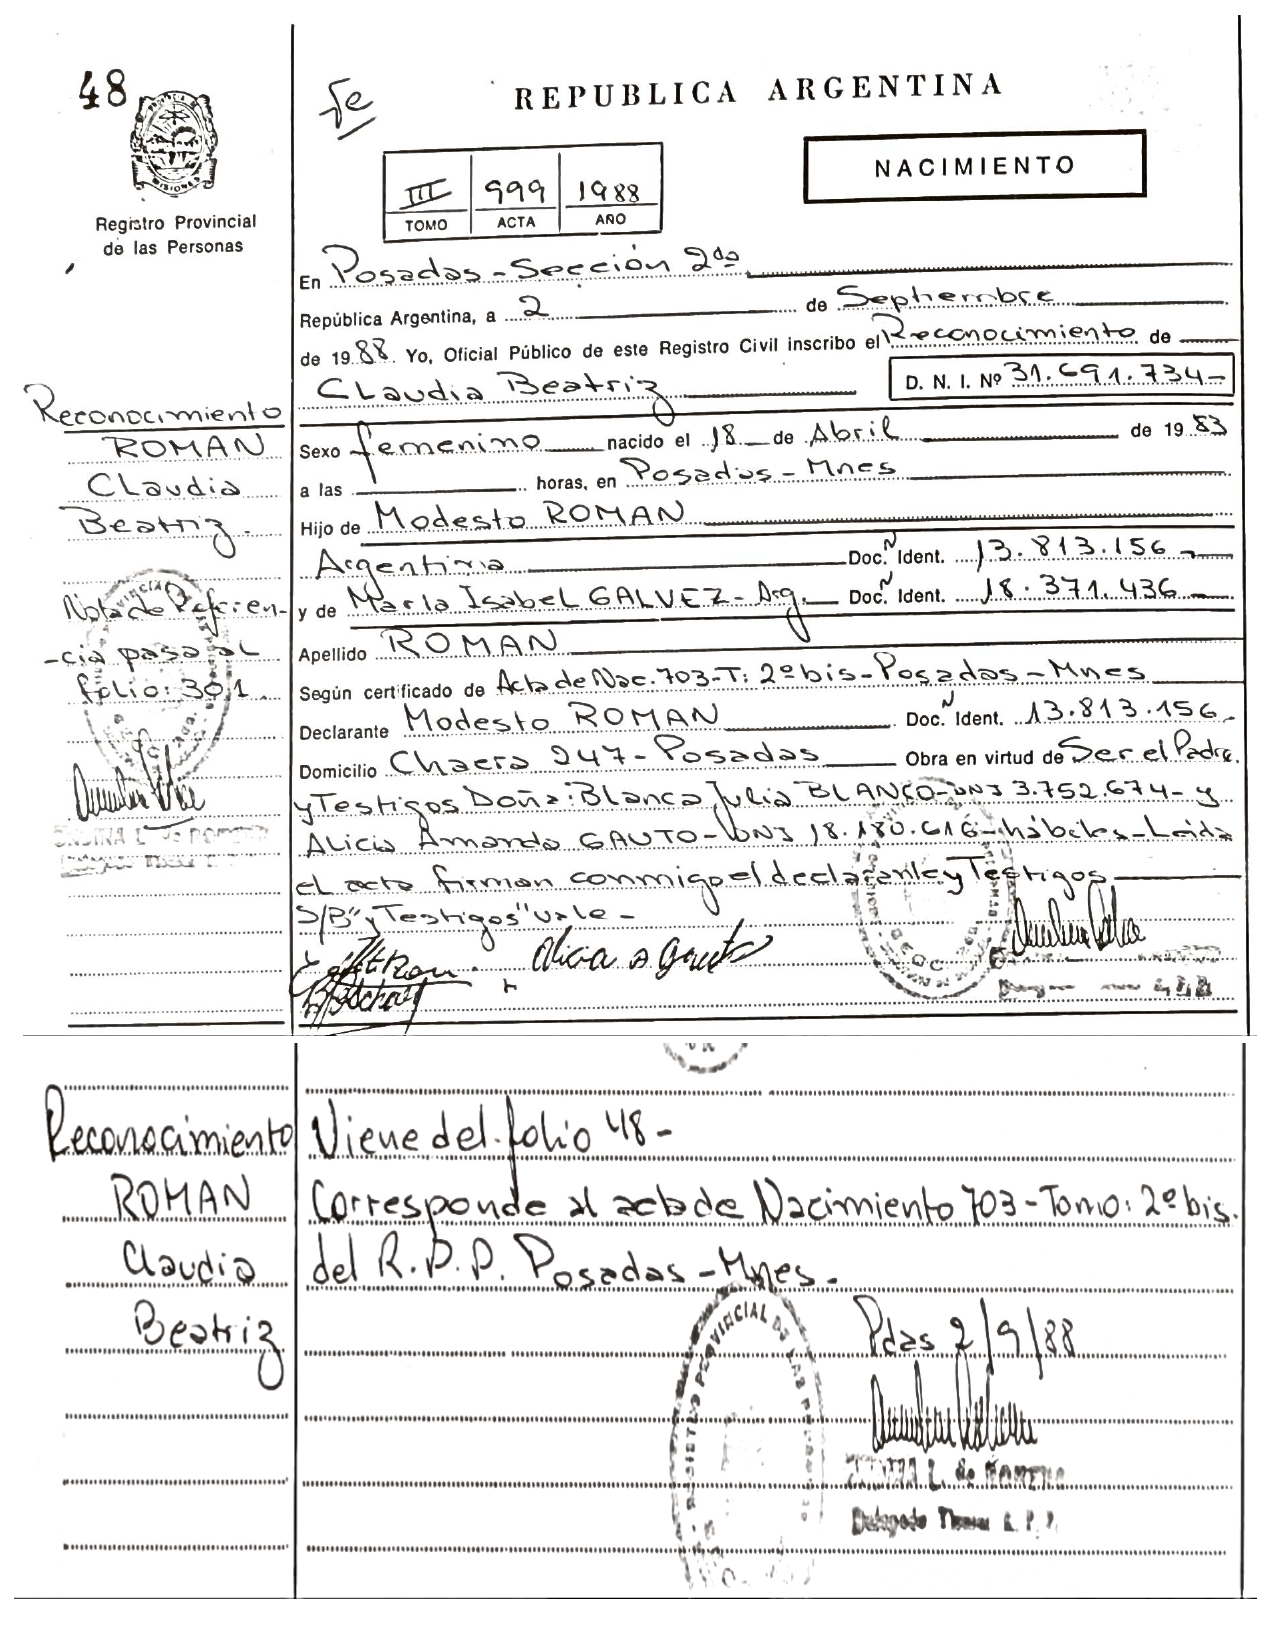 48
REPUBLICA ARGENTINA
NACIMIENTO
III 999 1988
TOMO ACTA AÑO
MISIONES
Registro Provincial
de las Personas
En Posadas - Sección 2da
República Argentina, a 2 de Septiembre
de 1988. Yo, Oficial Público de este Registro Civil inscribo el Reconocimiento de
CLaudia Beatriz D. N. I. Nº 31.691.734-
Sexo femenino nacido el 18 de Abril de 1983
a las horas, en Posadas - Mnes
Hijo de Modesto ROMAN
Argentina Doc. Ident. 13.813.156
y de María Isabel GALVEZ - Arg. Doc. Ident. 18.371.436
Apellido ROMAN
Según certificado de Acta de Nac. 703-T: 2º bis - Posadas - Mnes
Declarante Modesto ROMAN Doc. Ident. 13.813.156.
Domicilio Chacra 247 - Posadas Obra en virtud de Ser el Padre.
y Testigos Doña: Blanca Julia BLANCO - DNI 3.752.674 - y
Alicia Amanda GAUTO - DNI 18.180.616 - hábiles - Leida
el acta firman conmigo el declarante y Testigos
S/B "y Testigos" vale -
Alicia A Gauto
Reconocimiento
ROMAN
CLaudia
Beatriz.
Nota de Referen-
-cia pasa al
folio: 301
Reconocimiento
ROMAN
Claudia
Beatriz
Viene del folio 48 -
Corresponde al acta de Nacimiento 703 - Tomo: 2º bis.
del R.P.P. Posadas - Mnes.
Pdas 2/9/88
REGISTRO PROVINCIAL DE LAS
L. de ROMERO
Delegada R. P. P.